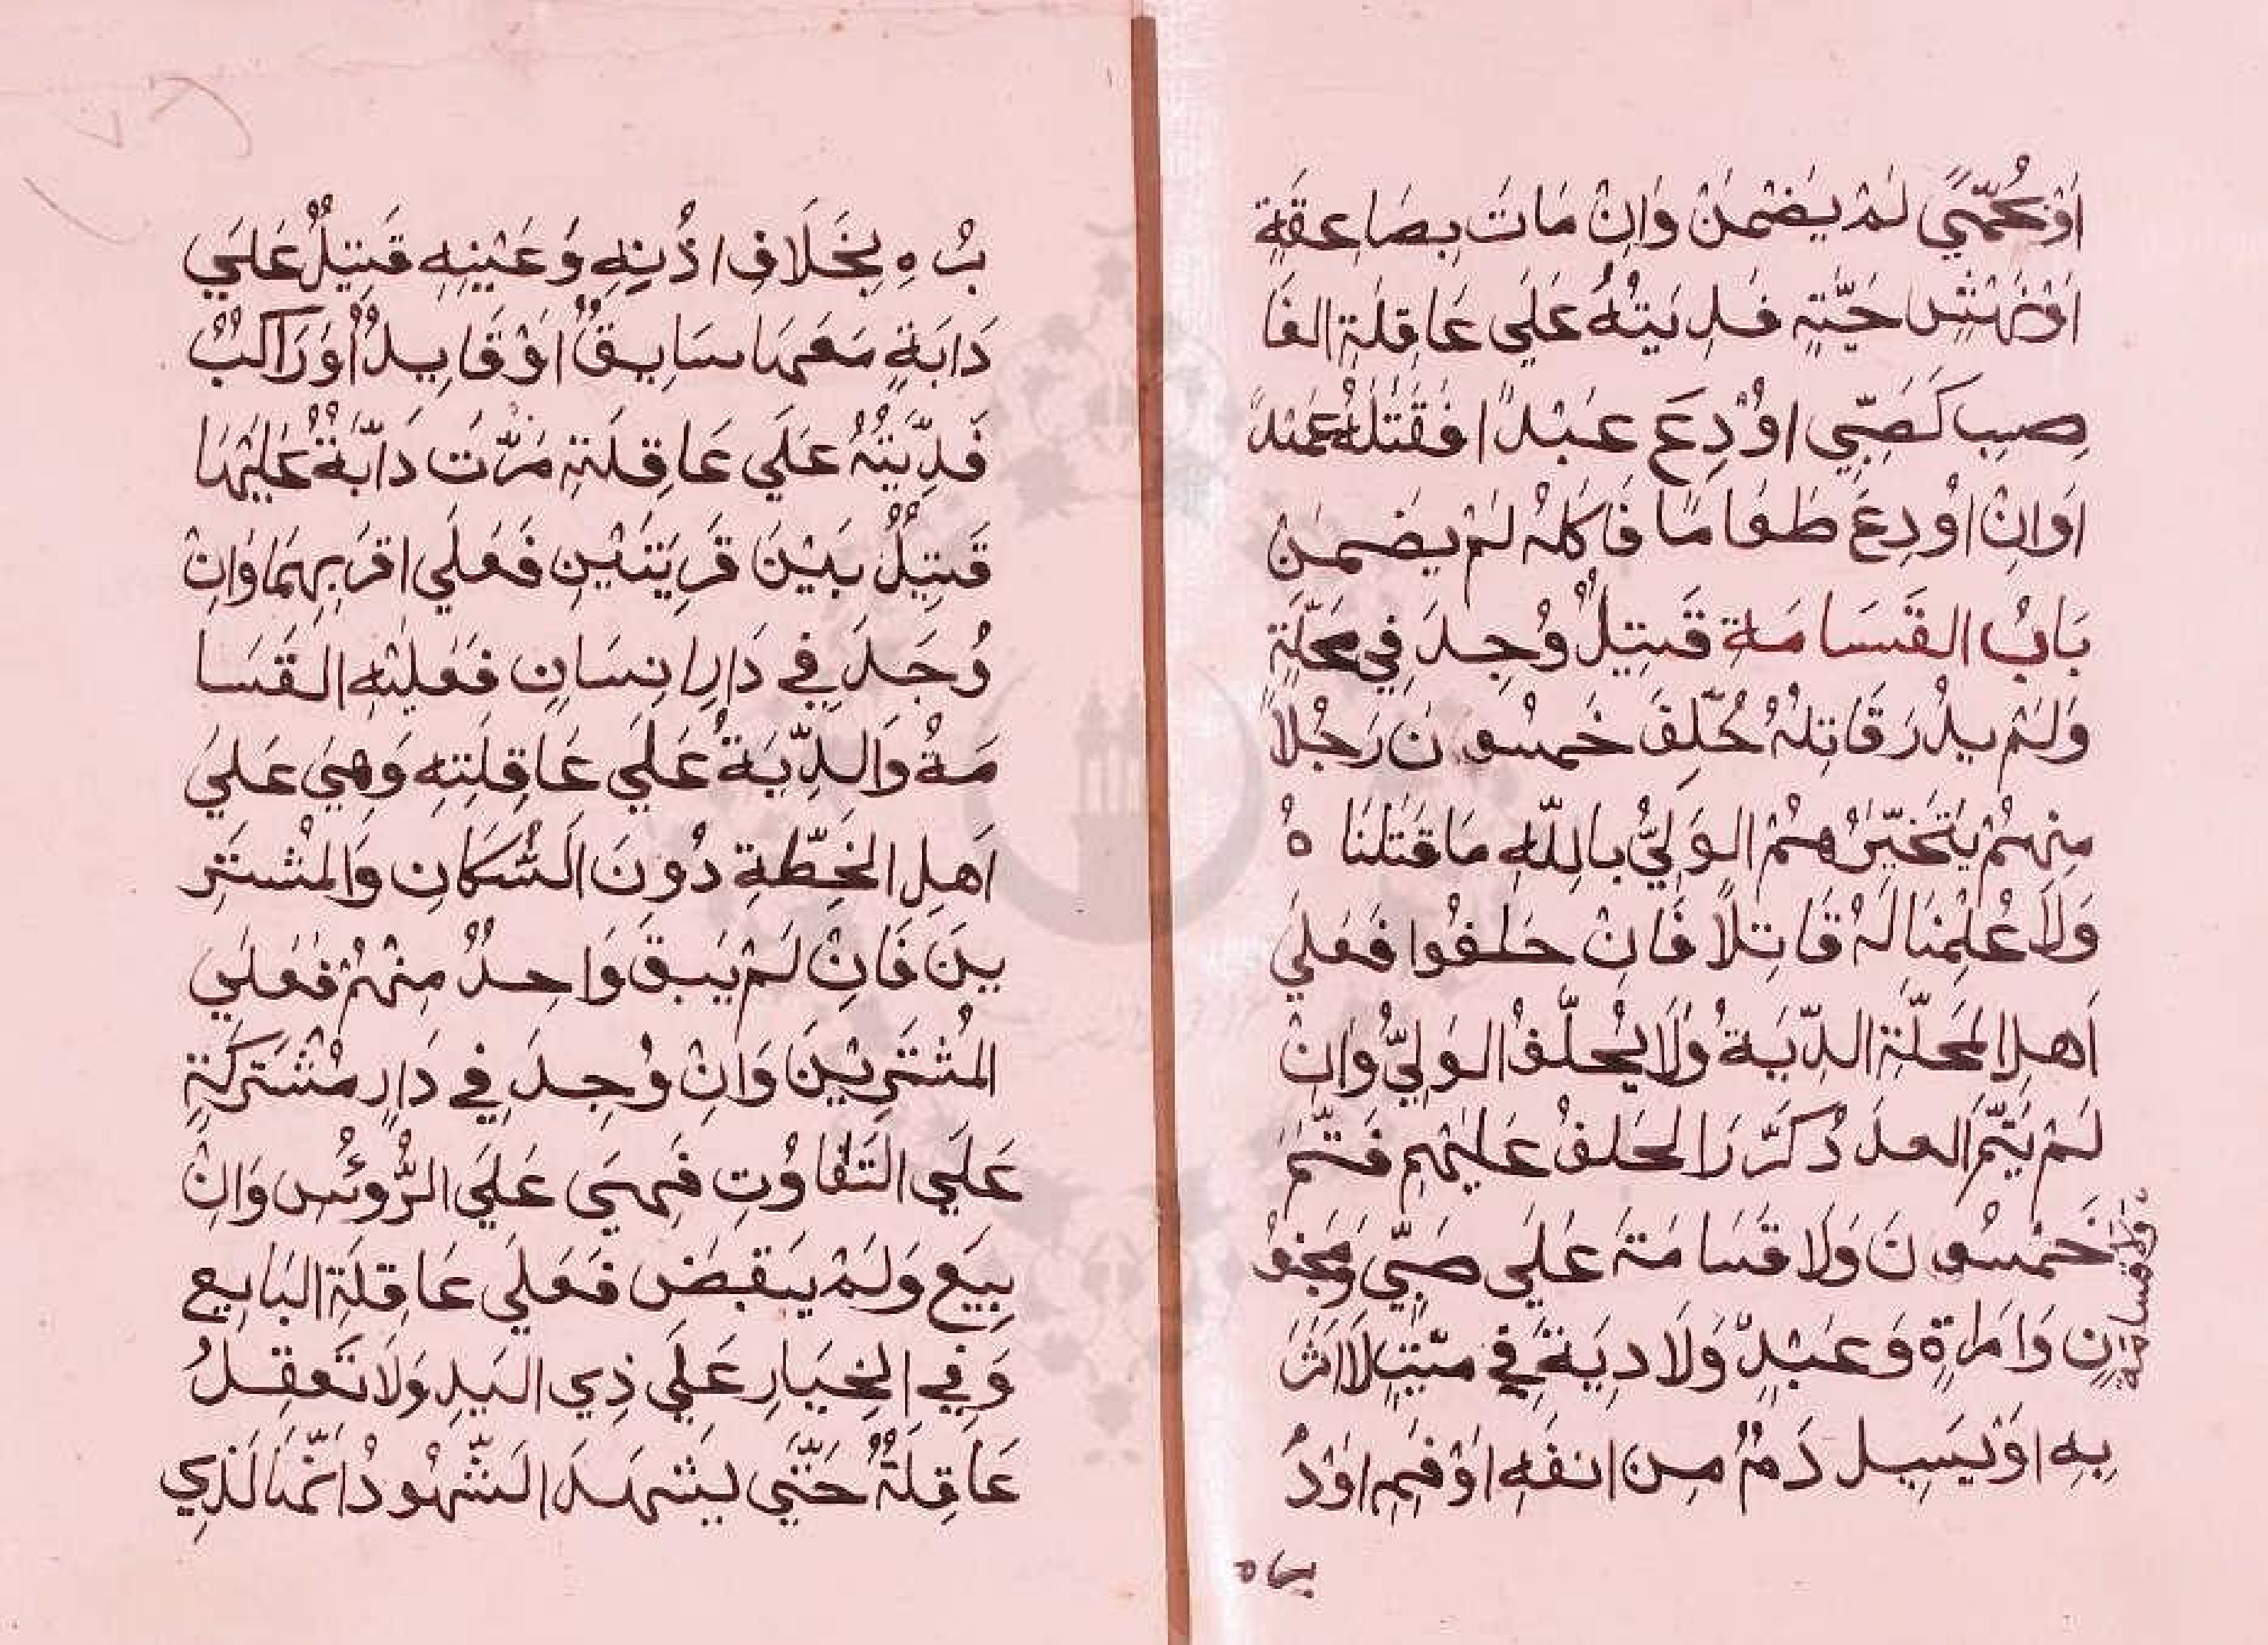 اَوْبحُمّيً لَمْ يَضْمَنْ وَاِنْ مَاتَ بِصَاعِقَةٍ
اَوْنَهْشِ حَيَّةٍ فَدِيَتُهُ عَلَي عَاقِلَةِ الغَا
صِبِ كَصَبِّي اُوْدِعَ عَبْدًا فَقَتَلَهُ عَمْدًا
اوَانِْ اُودِعَ طَعَامًا فَاكَلهُ لَمْ يضمنْ
بَابُ القَسَامَةِ قَتِيلٌ وُجِدَ فِي مَحَلّةٍ
وَلَمْ يدُرَ قَاتِلُهُ حُلِّفَ خَمسُونَ رَجُلاً
مِنْهُمْ يَتَخَيّرُهمُْ الوَلِيُّ بالِلّهِ مَا قَتَلنَا هُ
وَلاَ عَُلِمْنَا لَهُ قَاتِلاً فَانِْ حَلفُوا فَعَلَي
اَهلِ المَحَلّةِ الدِّيَةُ وَلَا يُحلّفُ الوَلِيُّ وَانِْ
لَمْ يَتِمَّ العدَدُ كرَّرَ الحَلفُ عَليْهِم فَتّمَ
خَمْسُونَ وَلَا قَسَامَةَ عَلَي صَبِّي وَمَجنُوْ
نٍ وَامَراةٍ وَعَبْدٍ وَلَا دِيَةَ فِي ميّتٍ لَااَثَرَ
بِهِ اَوْيَسِيل دَمٌ مِن انفَهِ اَوْفَمِهِ اَوْدُ
ولا قسامة
برہ
بُرِہِ بِخَلَافِ اذُنِهِ وَعَيْنِهِ قَتِيلٌ عَلَي
دَابَةٍ مَعَهَا سَايِقٌ اَوْقَايِدٌ اَوْرَاكبٌ
فَدِّيَتُهُ عَلَي عَاقِلَتِهِ مَرَّت دَابّةٌ عَليْهَا
قَتِيلٌ بَيْنَ قَريَتَيْنِ فَعَلَي اقرَبِهِمَا وَانِْ
وُجَدَ فِي دَارِ اِنسَانٍ فَعَليْهِ القَسَا
مَةُ وَالدِّيَةُ عَلَي عَاقِلَتِهِ وَهِيَ عَليَ
اَهلِ الخِطّةِ دُونَ السُّكَانِ وَالمُشتَرِ
ينَ فَانِْ لَمْ يَبقَ وَاحِدٌ مِنْهُمْ فَعَلَي
المُشتَرِيْنَ وَانِْ وُجِدَ فِي دَارٍ مُشْتَركَةٍ
عَلَي التَفَاوُتِ فَهِيَ عَلَيَ الرُّوئُسِ وَانِْ
بِيَع وَلَمْ يَقبَض فَعَلَي عَاقِلَةِ البَايِع
وَفِي الخِيَارِ عَلَي ذِي اليَدِ وَلَا تَعقِلُ
عَاقِلَةٌ حَتَّي يَشهَدَ الشّهُودُ انَّهَا لَذِي